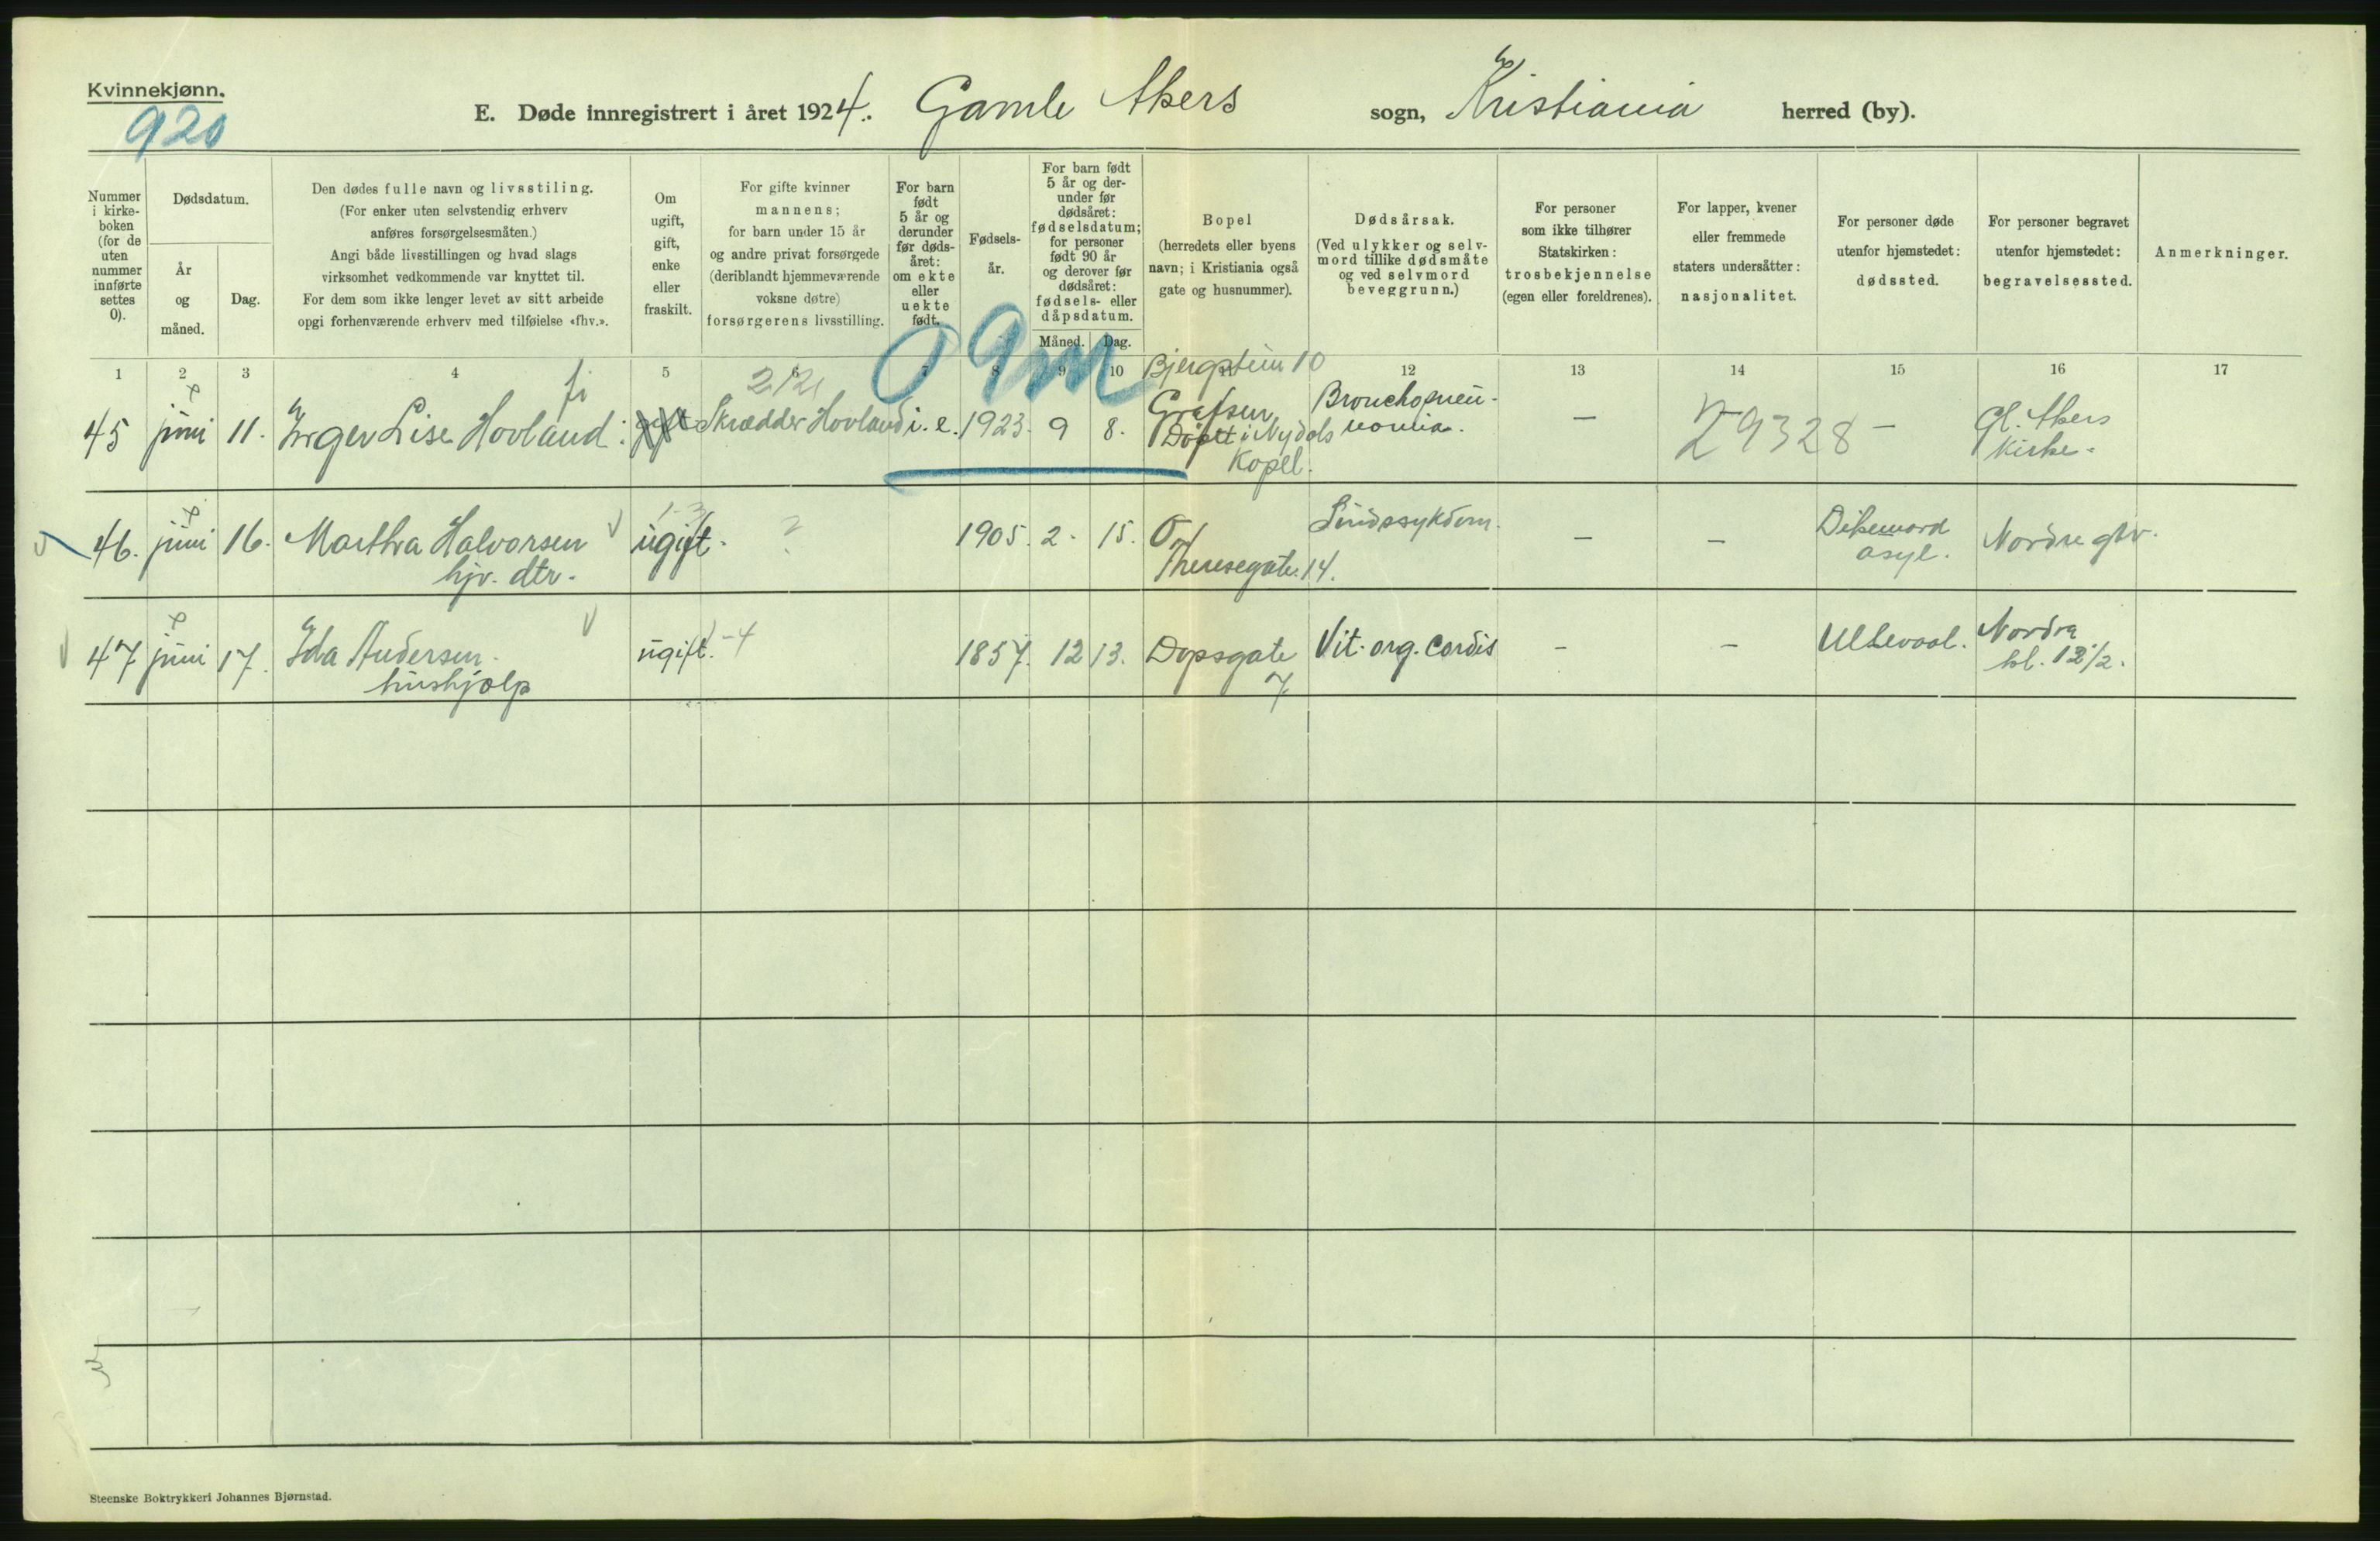 Kvinnekjønn.
920
E. Døde innregistrert i året 1924. Gamle Akers sogn, Kristiania herred (by).
Nummer i kirke-boken (for de uten nummer innførte settes 0).
Dødsdatum.
År og måned.
Dag.
Den dødes fulle navn og livsstiling.
(For enker uten selvstendig erhverv
anføres forsørgelsesmåten.)
Angi både livsstillingen og hvad slags
virksomhet vedkommende var knyttet til.
For dem som ikke lenger levet av sitt arbeide
opgi forhenværende erhverv med tilføielse «fhv.».
Om ugift, gift, enke eller fraskilt.
For gifte kvinner
mannens;
for barn under 15 år
og andre privat forsørgede
(deriblandt hjemmeværende
voksne døtre)
forsørgerens livsstilling.
For barn født 5 år og derunder før døds-året: om ekte eller uekte født.
Fødsels-år.
For barn født
5 år og der-
under før
dødsåret:
fødselsdatum;
for personer
født 90 år
og derover før
dødsåret:
fødsels- eller
dåpsdatum.
Måned. Dag.
Bopel
(herredets eller byens
navn; i Kristiania også
gate og husnummer).
Dødsårsak.
(Ved ulykker og selv-
mord tillike dødsmåte
og ved selvmord
beveggrunn.)
For personer
som ikke tilhører
Statskirken:
trosbekjennelse
(egen eller foreldrenes).
For lapper, kvener
eller fremmede
staters undersåtter:
nasjonalitet.
For personer døde
utenfor hjemstedet:
dødssted.
For personer begravet
utenfor hjemstedet:
begravelsessted.
Anmerkninger.
1 2 3 4 5 6 7 8 9 10 11 12 13 14 15 16 17
09m
45 juni 11. Inger Lise Hovland. gift Skrædder Hovland i. e. 1923. 9 8.
Grefsen
Døpt i Nydals
Kapel.
Bronchopneu-
monia.
– 29328 –
Gl. Akers
kirke.
46. juni 16. Martha Halvorsen
hjv. dtr.
ugift. ? 1905. 2. 15.
Theresegate. 14.
Sindssykdom.
– –
Dikemark
asyl.
Nordre glv.
47 juni 17. Ida Andersen
hushjælp
ugift. -4 1857. 12 13.
Dopsgate
7
Vit. org. cordis
– –
Ullevaal.
Nordre
kl. 12 1/2.
3
Steenske Boktrykkeri Johannes Bjørnstad.